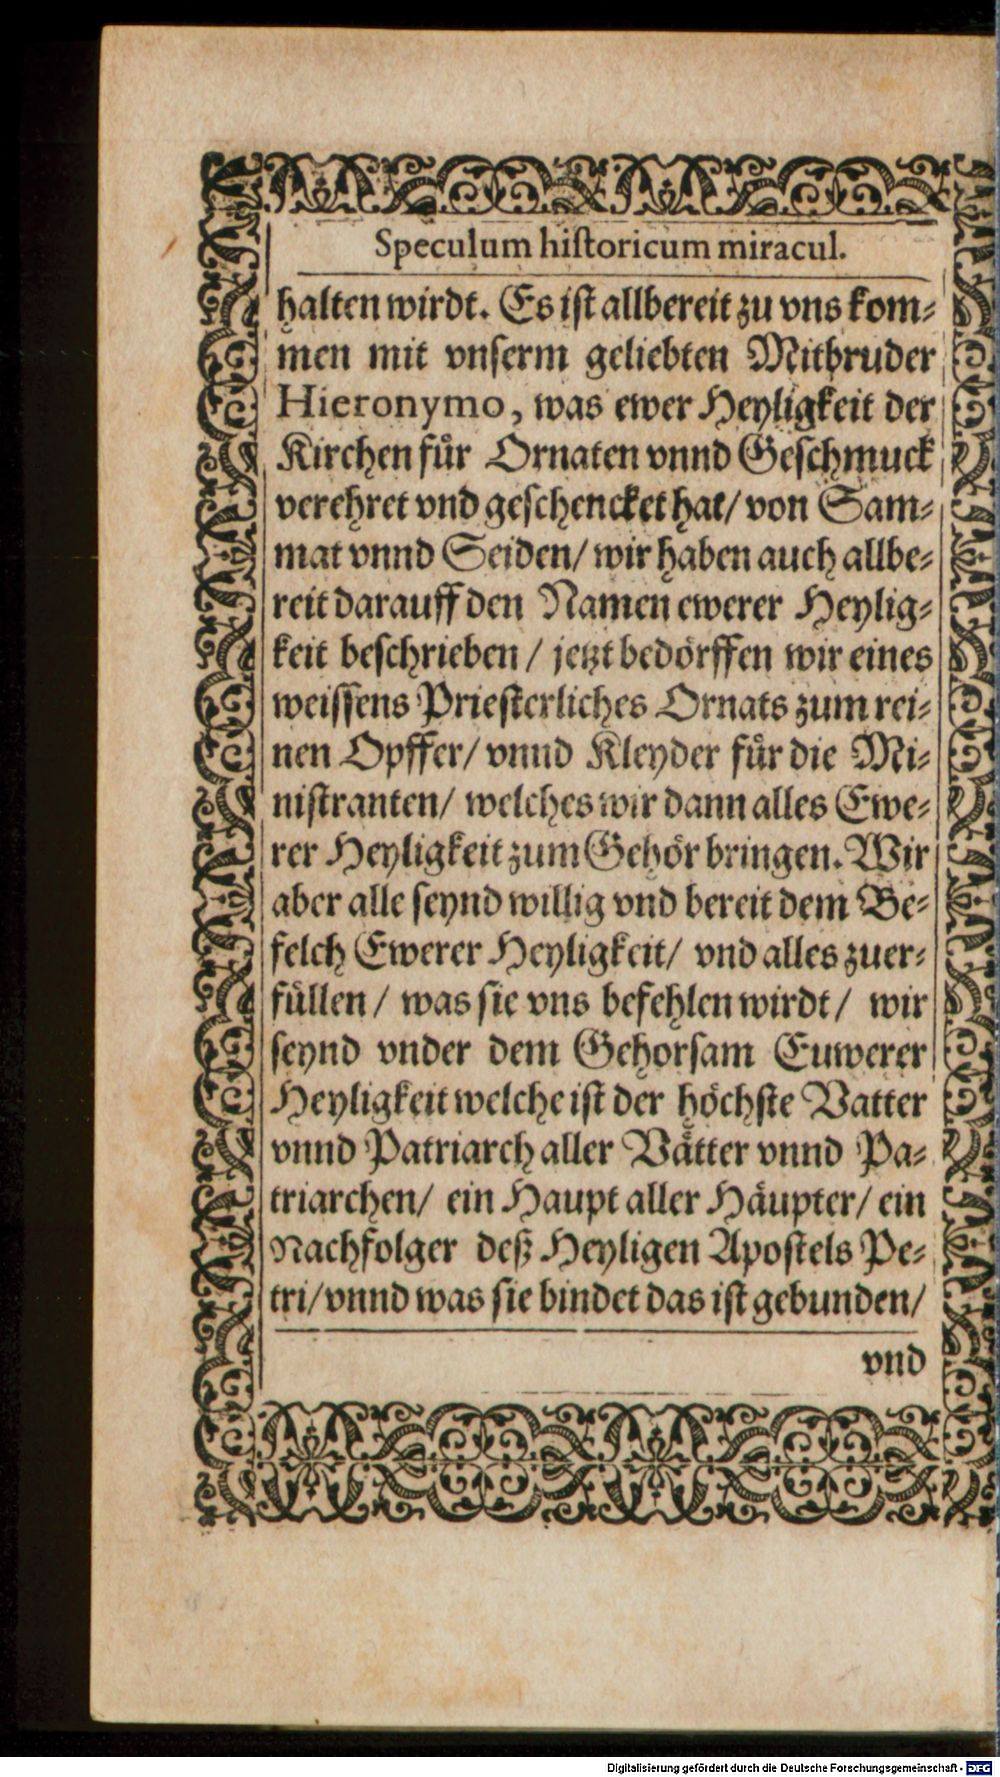 Speculum historicum miracul.
halten wirdt. Es ist allbereit zu vns kom⸗
men mit vnserm geliebten Mitbruder
Hieronymo, was ewer Heyligkeit der
Kirchen fuͤr Ornaten vnnd Geschmuck
verehret vnd geschencket hat/ von Sam⸗
mat vnnd Seiden/ wir haben auch allbe⸗
reit darauff den Namen ewerer Heylig⸗
keit beschrieben / jetzt bedoͤrffen wir eines
weissens Priesterliches Ornats zum rei⸗
nen Opffer/ vnnd Kleyder fuͤr die Mi⸗
nistranten/ welches wir dann alles Ewe⸗
rer Heyligkeit zum Gehoͤr bringen. Wir
aber alle seynd willig vnd bereit dem Be⸗
felch Ewerer Heyligkeit/ vnd alles zuer⸗
fuͤllen / was sie vns befehlen wirdt/ wir
seynd vnder dem Gehorsam Euwerer
Heyligkeit welche ist der hoͤchste Vatter
vnnd Patriarch aller Vaͤtter vnnd Pa⸗
triarchen/ ein Haupt aller Haͤupter/ ein
Nachfolger deß Heyligen Apostels Pe⸗
tri/ vnnd was sie bindet das ist gebunden/
vnd
Digitalisierung gefördert durch die Deutsche Forschungsgemeinschaft - DFG